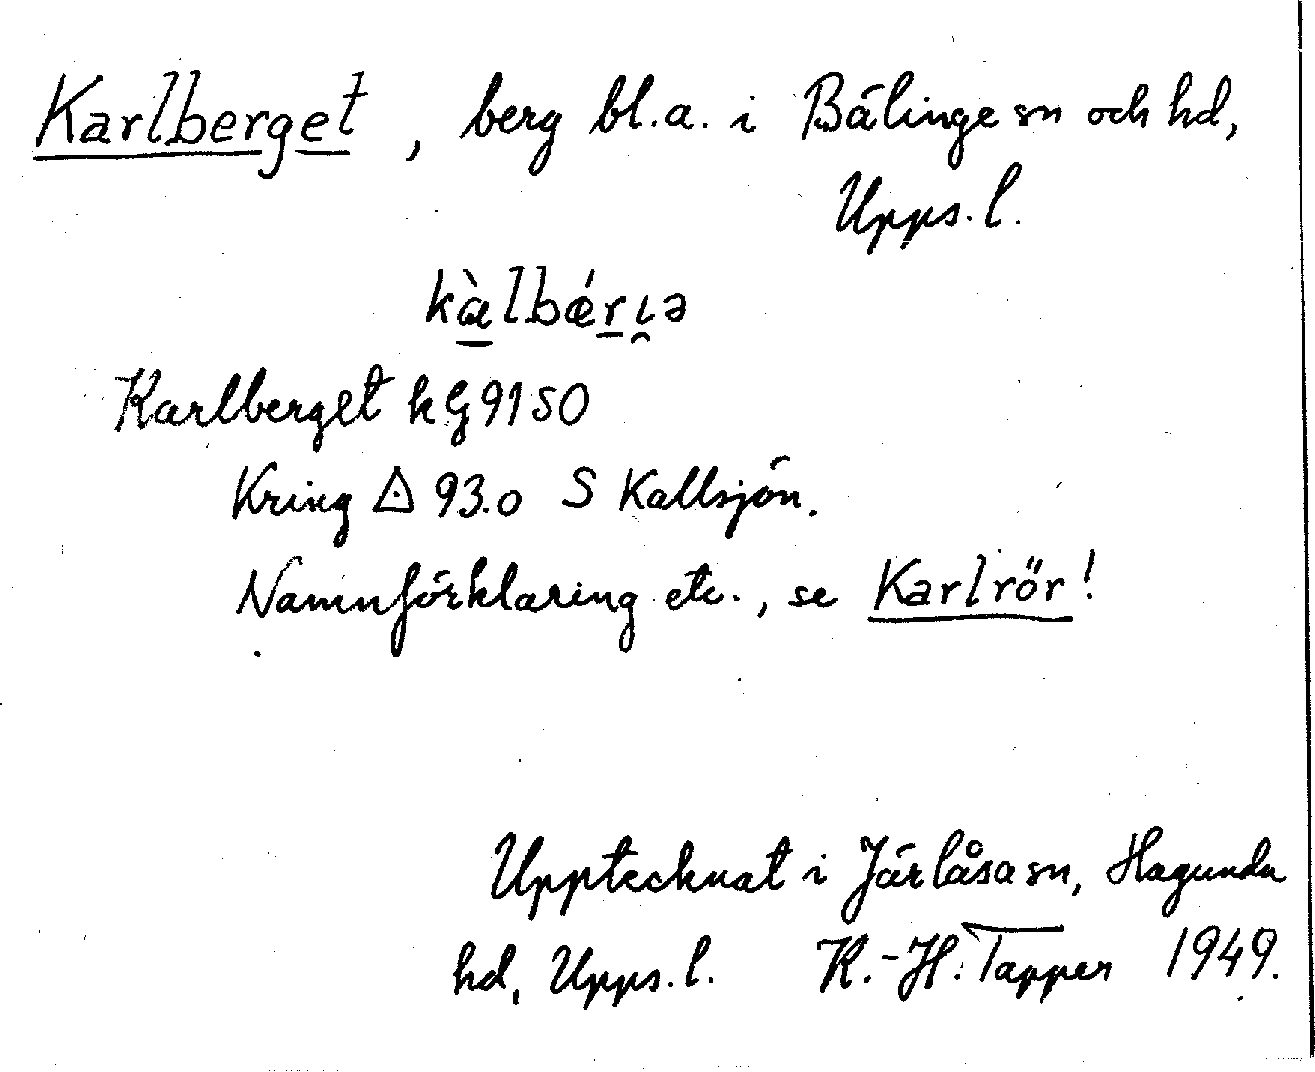 Karlberget, berg bl.a. i Bälinge sn och hd,
Upps. l.
kàlbǽrı̯ə
Karlberget kG 9150
Kring ◬ 93.0 S Kallsjön.
Namnförklaring etc., se Karlrör!
Upptecknat i Järlåsa sn, Hagunda
hd, Upps. l. K.-H. Tapper 1949.